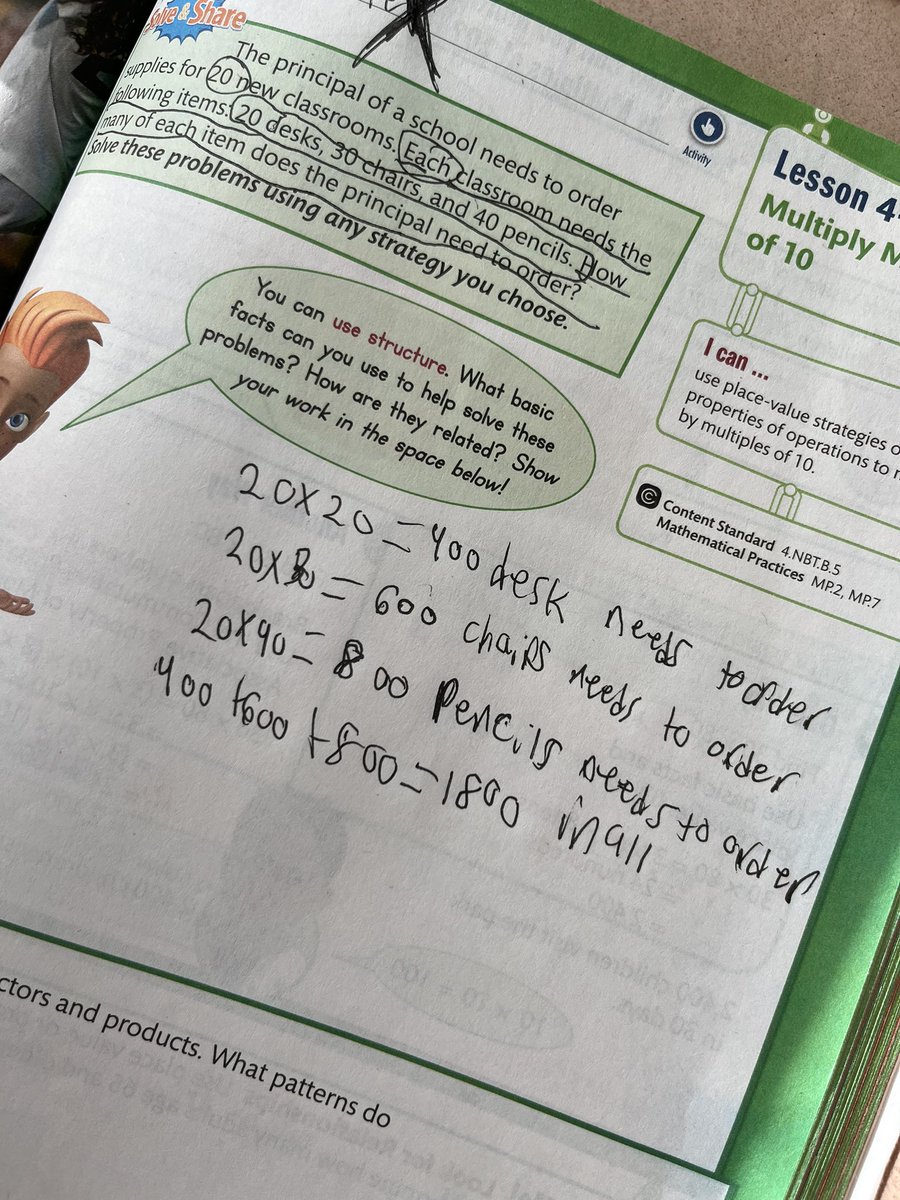 Solve & Share
The principal of a school needs to order
supplies for 20 new classrooms. Each classroom needs the
following items: 20 desks, 30 chairs, and 40 pencils. How
many of each item does the principal need to order?
Solve these problems using any strategy you choose.
Activity
Lesson 4-
Multiply M
of 10
I can ...
use place-value strategies o
properties of operations to
by multiples of 10.
Content Standard 4.NBT.B.5
Mathematical Practices MP.2, MP.7
You can use structure. What basic
facts can you use to help solve these
problems? How are they related? Show
your work in the space below!
20x20=400 desk needs to order
20x30=600 chairs needs to order
20x40=800 Pencils needs to order
400+600+800=1800 in all
ctors and products. What patterns do